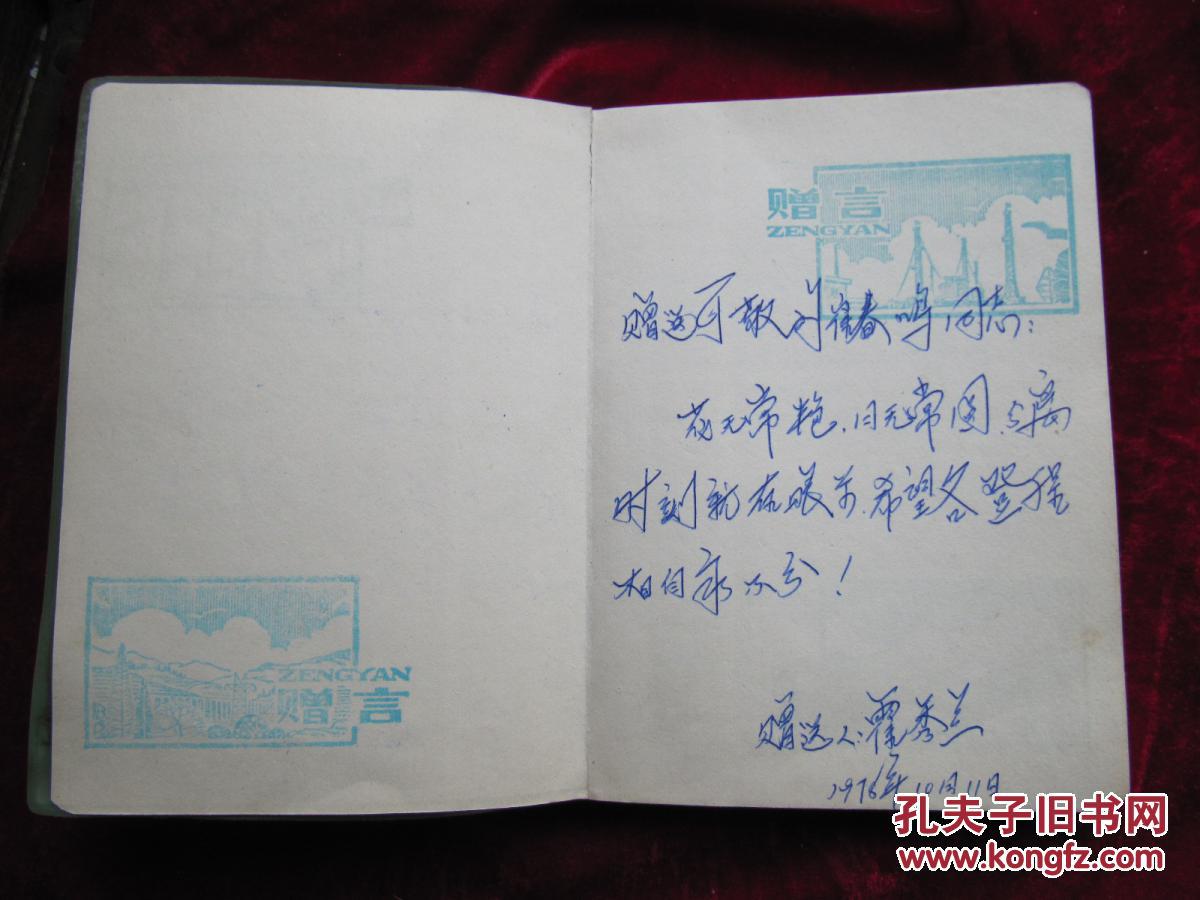 赠言
ZENGYAN
赠送可敬的崔春鸣同志:
花无常艳.月无常圆.离
时刻就在眼前.希望各登程
相永不分!
赠送人:秀兰
1976年10月11日
ZENGYAN
赠言
孔夫子旧书网
www.kongfz.com